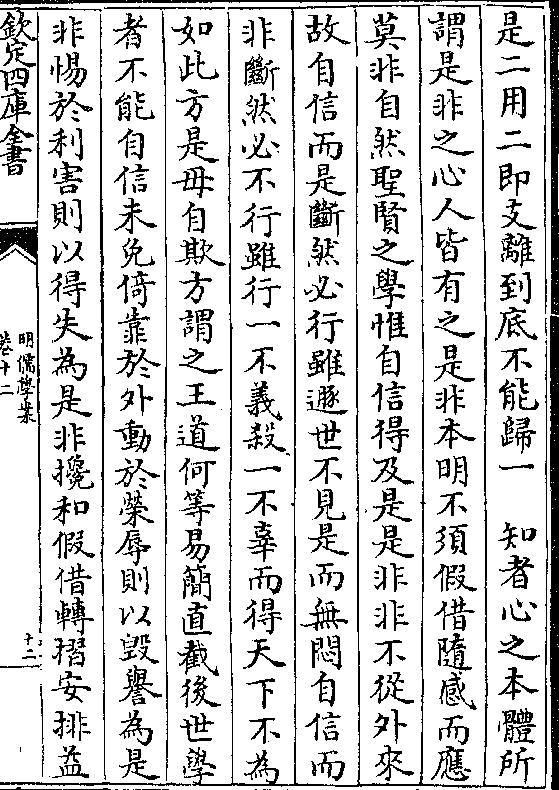 是二用二即支離到底不能歸一　知者心之本體所
謂是非之心人皆有之是非本明不須假借隨感而應
莫非自然聖賢之學惟自信得及是是非非不從外來
故自信而是斷然必行雖遯世不見是而無悶自信而
非斷然必不行雖行一不義殺一不辜而得天下不為
如此方是毋自欺方謂之王道何等易簡直截後世學
者不能自信未免倚靠於外動於榮辱則以毀譽為是
非惕於利害則以得失為是非攙和假借轉摺安排益
欽定四庫全書
明儒學案
卷十二
十二